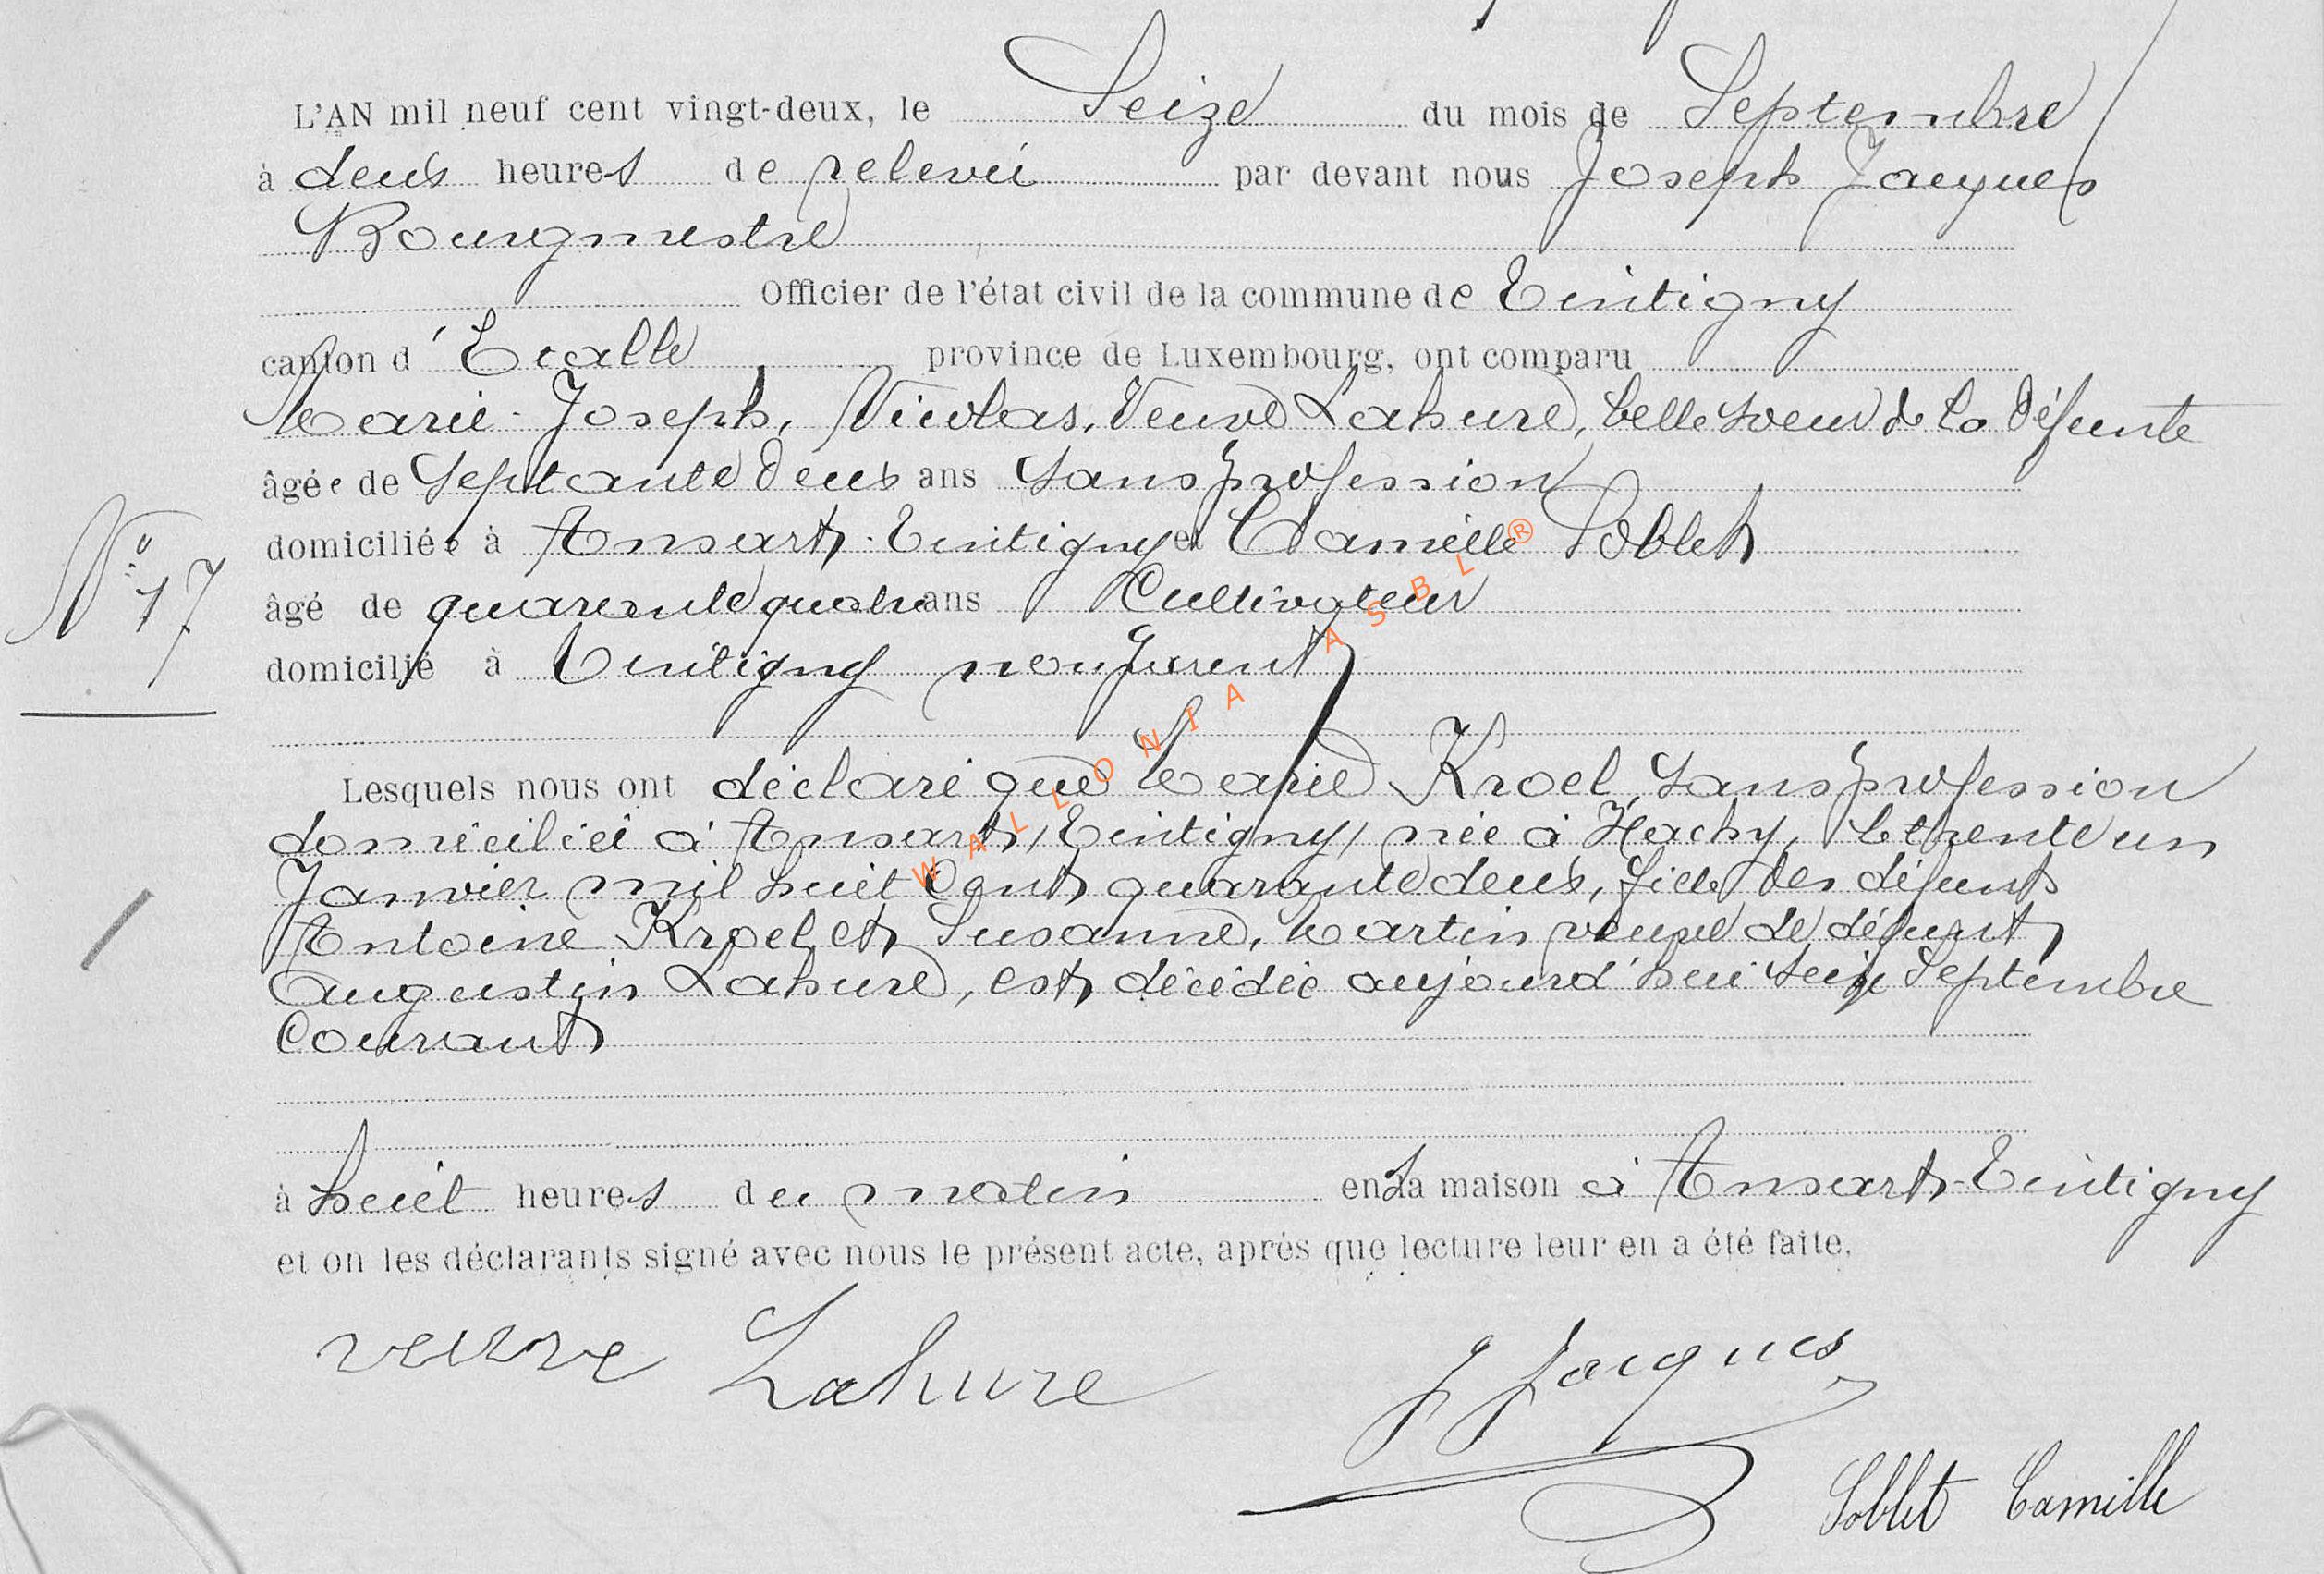 L'AN mil neuf cent vingt-deux, le Seize du mois de Septembre
à deux heures de relevée par devant nous Joseph Jacques
Bourgmestre
Officier de l'état civil de la commune de Tintigny
canton d'Etalle province de Luxembourg, ont comparu
Marie-Joseph, Nicolas, Veuve Lahure, belle soeur de la défunte
âgée de Septante deux ans Sans profession
domiciliée à Ansart-Tintigny et Camille Soblet
âgé de quarante quatre ans Cultivateur
domicilié à Tintigny non parent
N° 17
Lesquels nous ont déclaré que Marie Kroel, Sans profession
domiciliée à Ansart, (Tintigny) née à Hachy, le trente un
Janvier mil huit Cent quarante deux, fille des défunts
Antoine Kroel et Susanne, Martin veuve de défunt
Augustin Lahure, est décédée aujourd'hui Seize Septembre
Courant
à huit heures du matin en Sa maison à Ansart-Tintigny
et on les déclarants signé avec nous le présent acte, après que lecture leur en a été faite.
veuve Lahure
J Jacques
Soblet Camille
WALLONIA ASBL ®